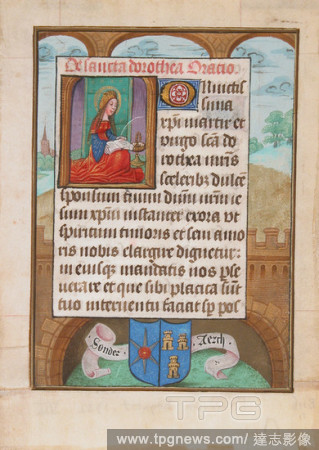 De sancta dorothea Oratio.
O dilectis
sima
xpi martir et
virgo scā do
rothea miris
sceleribꝫ dulcē
sponsum tuum dñum nrm ie
sum xpm instanter exora vt
spiritum timoris et sui amor
is nobis elargire dignetur:
in eiusqꝫ mandatis nos pse
uerare et que sibi placita sunt
tuo interuentu faciat sp pos
Sonder
Aerch
TPG
www.tpgnews.com / 達志影像